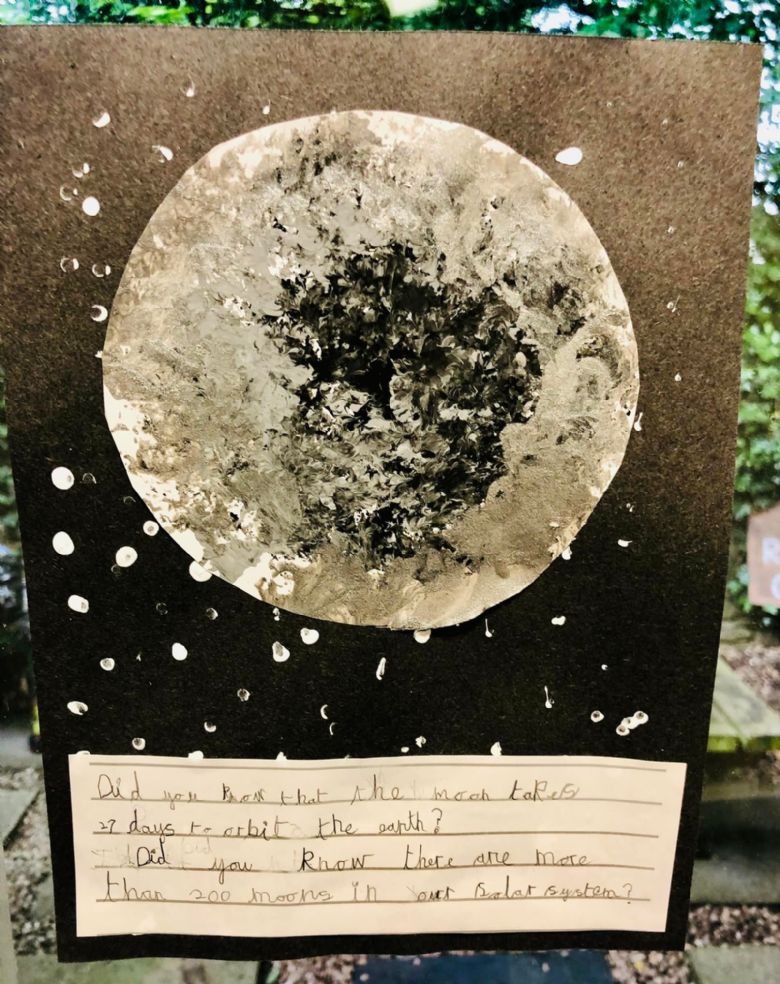 Did you know that the moon takes
27 days to orbit the earth?
Did you know there are more
than 200 moons in our solar system?